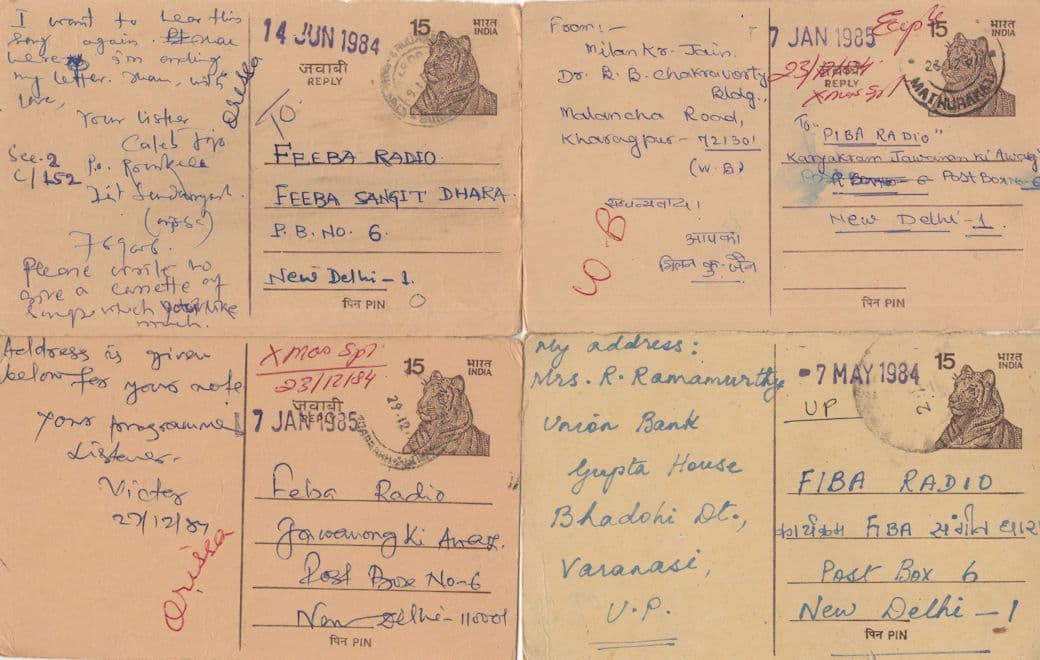 I want to hear this
song again.
here I'm ending
my letter. Than, with
love,
Your listher
Caleb Jojo
Sec. 2
C/152
P.o. Rourkela
Dist Sundargarh
(orissa)
Please write to
give a cassette of
songs which you like
much.
Orissa
14 JUN 1984
15
भारत
INDIA
जवाबी
REPLY
To
FEEBA RADIO
FEEBA SANGIT DHARA
P.B. No. 6.
New Delhi-1.
पिन PIN
From:-
Milan Kr. Jain.
Dr. R. B. Chakravorty
Bldg.,
Malancha Road,
Kharagpur- 721301
(W.B)
आपका
मिलन कु. जैन
W B
7 JAN 1985
15
भारत
INDIA
REPLY
23/12/84
Xmas Spl
MATHURAKATI
To
"PIBA RADIO"
Karyakram Jawanon Ki Awaj
Post Box No 6
New Delhi-1.
पिन PIN
Address is given
below for your note
Your programme
Listener.
Victor
27/12/84
Orissa
Xmas Spl
23/12/84
15
भारत
INDIA
जवाबी
REPLY
7 JAN 1985
Feba Radio
Jawanong Ki Awaz.
Post Box No-6
New Delhi-110001
पिन PIN
My address:
Mrs. R. Ramamurthy
Union Bank
Gupta House
Bhadohi Dt.,
Varanasi,
U.P.
-7 MAY 1984
UP
15
भारत
INDIA
FIBA RADIO
कार्यक्रम FIBA संगीत धारा
Post Box 6
New Delhi-1
पिन PIN